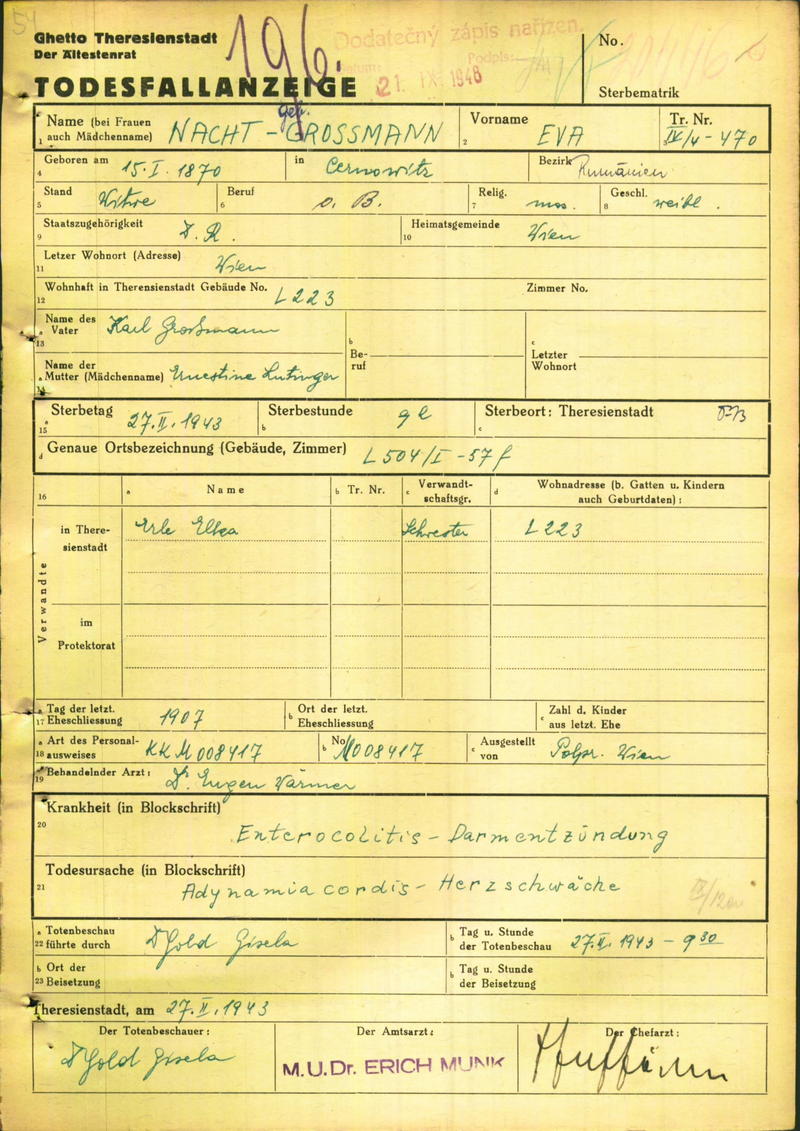 54
Ghetto Theresienstadt
Der Ältestenrat
TODESFALLANZEIGE
196.
Dodatečný zápis nařízen
Datum: 21 IX 1946 Podpis:
No.
Sterbematrik
1 Name (bei Frauen auch Mädchenname) NACHT - geb. GROSSMANN
2 Vorname EVA
3 Tr. Nr. IV/4 - 470
4 Geboren am 15. I. 1870 in Cernowitz Bezirk Rumänien
5 Stand Witwe 6 Beruf o. B. 7 Relig. mos. 8 Geschl. weibl.
9 Staatszugehörigkeit D. R. 10 Heimatsgemeinde Wien
11 Letzer Wohnort (Adresse) Wien
12 Wohnhaft in Theresienstadt Gebäude No. L 223 Zimmer No.
13 a Name des Vater Karl Grossmann b Beruf c Letzter Wohnort
14 a Name der Mutter (Mädchenname) Ernestine
15 a Sterbetag 27. II. 1943 b Sterbestunde 9 c Sterbeort: Theresienstadt
d Genaue Ortsbezeichnung (Gebäude, Zimmer) L 504/I - 57 f
16 a Name b Tr. Nr. c Verwandtschaftsgr. d Wohnadresse (b. Gatten u. Kindern auch Geburtdaten):
Verwandte
in Theresienstadt Erle Elka Schwester L 223
im Protektorat
17 a Tag der letzt. Eheschliessung 1907 b Ort der letzt. Eheschliessung c Zahl d. Kinder aus letzt. Ehe
18 a Art des Personalausweises KK M 008417 b No M008417 c Ausgestellt von Polpr. Wien
19 Behandelnder Arzt: Dr. Eugen Värmer
20 Krankheit (in Blockschrift) Enterocolitis - Darmentzündung
21 Todesursache (in Blockschrift) Adynamia cordis - Herzschwäche
22 a Totenbeschau führte durch Dr Gold Gisela b Tag u. Stunde der Totenbeschau 27. II. 1943 - 9 30
23 b Ort der Beisetzung b Tag u. Stunde der Beisetzung
Theresienstadt, am 27. II. 1943
Der Totenbeschauer: Der Amtsarzt: Der Chefarzt:
Dr Gold Gisela M.U.Dr. ERICH MUNK